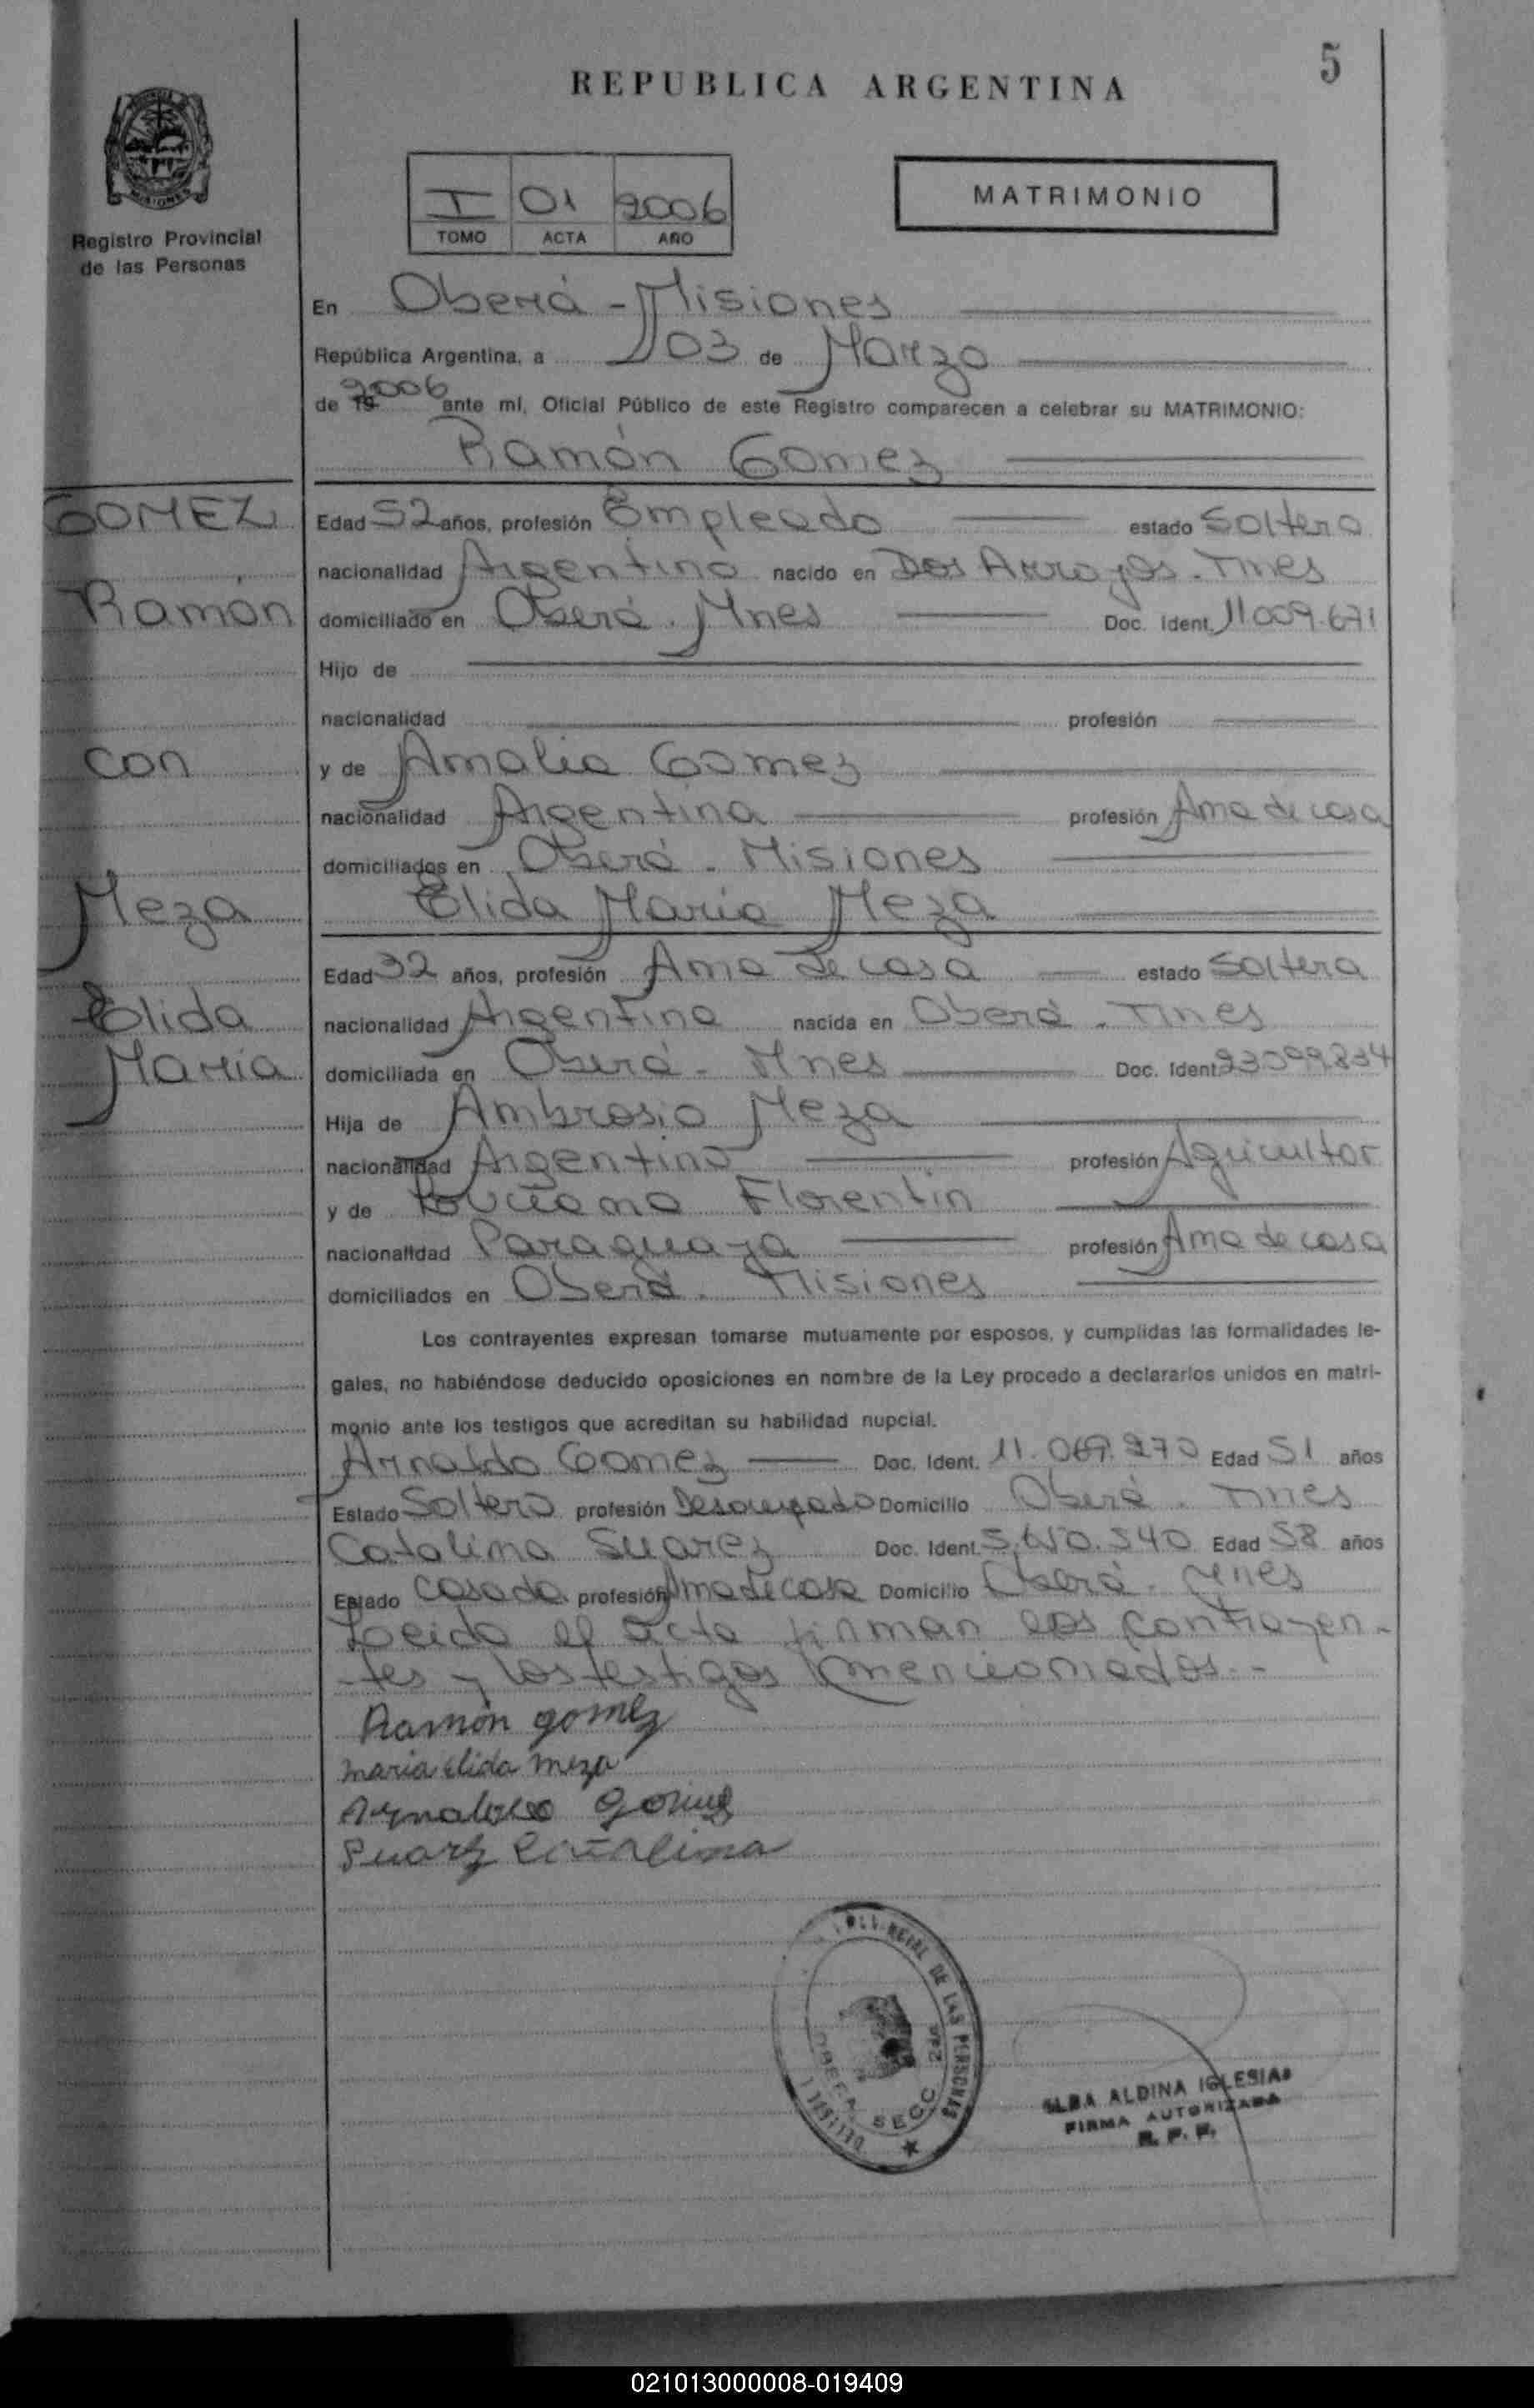 5
REPUBLICA ARGENTINA
MISIONES
Registro Provincial
de las Personas
I 01 2006
TOMO ACTA AÑO
MATRIMONIO
En Oberá - Misiones
República Argentina, a 03 de Marzo
de 19 2006 ante mí, Oficial Público de este Registro comparecen a celebrar su MATRIMONIO:
Ramón Gomez
GOMEZ
Ramón
con
Meza
Elida
María
Edad 52 años, profesión Empleado estado Soltero
nacionalidad Argentino nacido en Dos Arroyos - Mnes
domiciliado en Oberá - Mnes Doc. Ident. 11.009.671
Hijo de
nacionalidad profesión
y de Amalia Gomez
nacionalidad Argentina profesión Ama de casa
domiciliados en Oberá - Misiones
Elida María Meza
Edad 32 años, profesión Ama de casa estado Soltera
nacionalidad Argentina nacida en Oberá - Mnes
domiciliada en Oberá - Mnes Doc. Ident.
Hija de Ambrosio Meza
nacionalidad Argentino profesión Agricultor
y de Florentin
nacionalidad Paraguaya profesión Ama de casa
domiciliados en Oberá - Misiones
Los contrayentes expresan tomarse mutuamente por esposos, y cumplidas las formalidades le-
gales, no habiéndose deducido oposiciones en nombre de la Ley procedo a declararlos unidos en matri-
monio ante los testigos que acreditan su habilidad nupcial.
Arnaldo Gomez Doc. Ident. 11.069.270 Edad 51 años
Estado Soltero profesión Desocupado Domicilio Oberá - Mnes
Catalina Suarez Doc. Ident. 5.650.540 Edad 58 años
Estado Casada profesión Ama de casa Domicilio Oberá - Mnes
Leida el acta firman los contrayen-
tes y los testigos mencionados.-
Ramón gomez
maria elida meza
Arnaldo gomez
Suarez Catalina
DE LAS PERSONAS
OBERA SECC. 2da
MISIONES
ALBA ALDINA IGLESIAS
FIRMA AUTORIZADA
R. P. P.
021013000008-019409